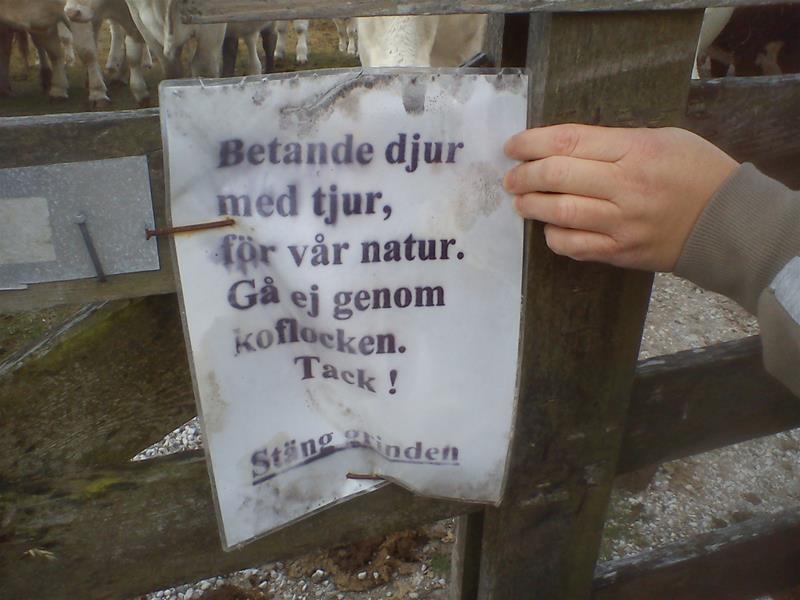 Betande djur
med tjur,
för vår natur.
Gå ej genom
koflocken.
Tack !
Stäng grinden